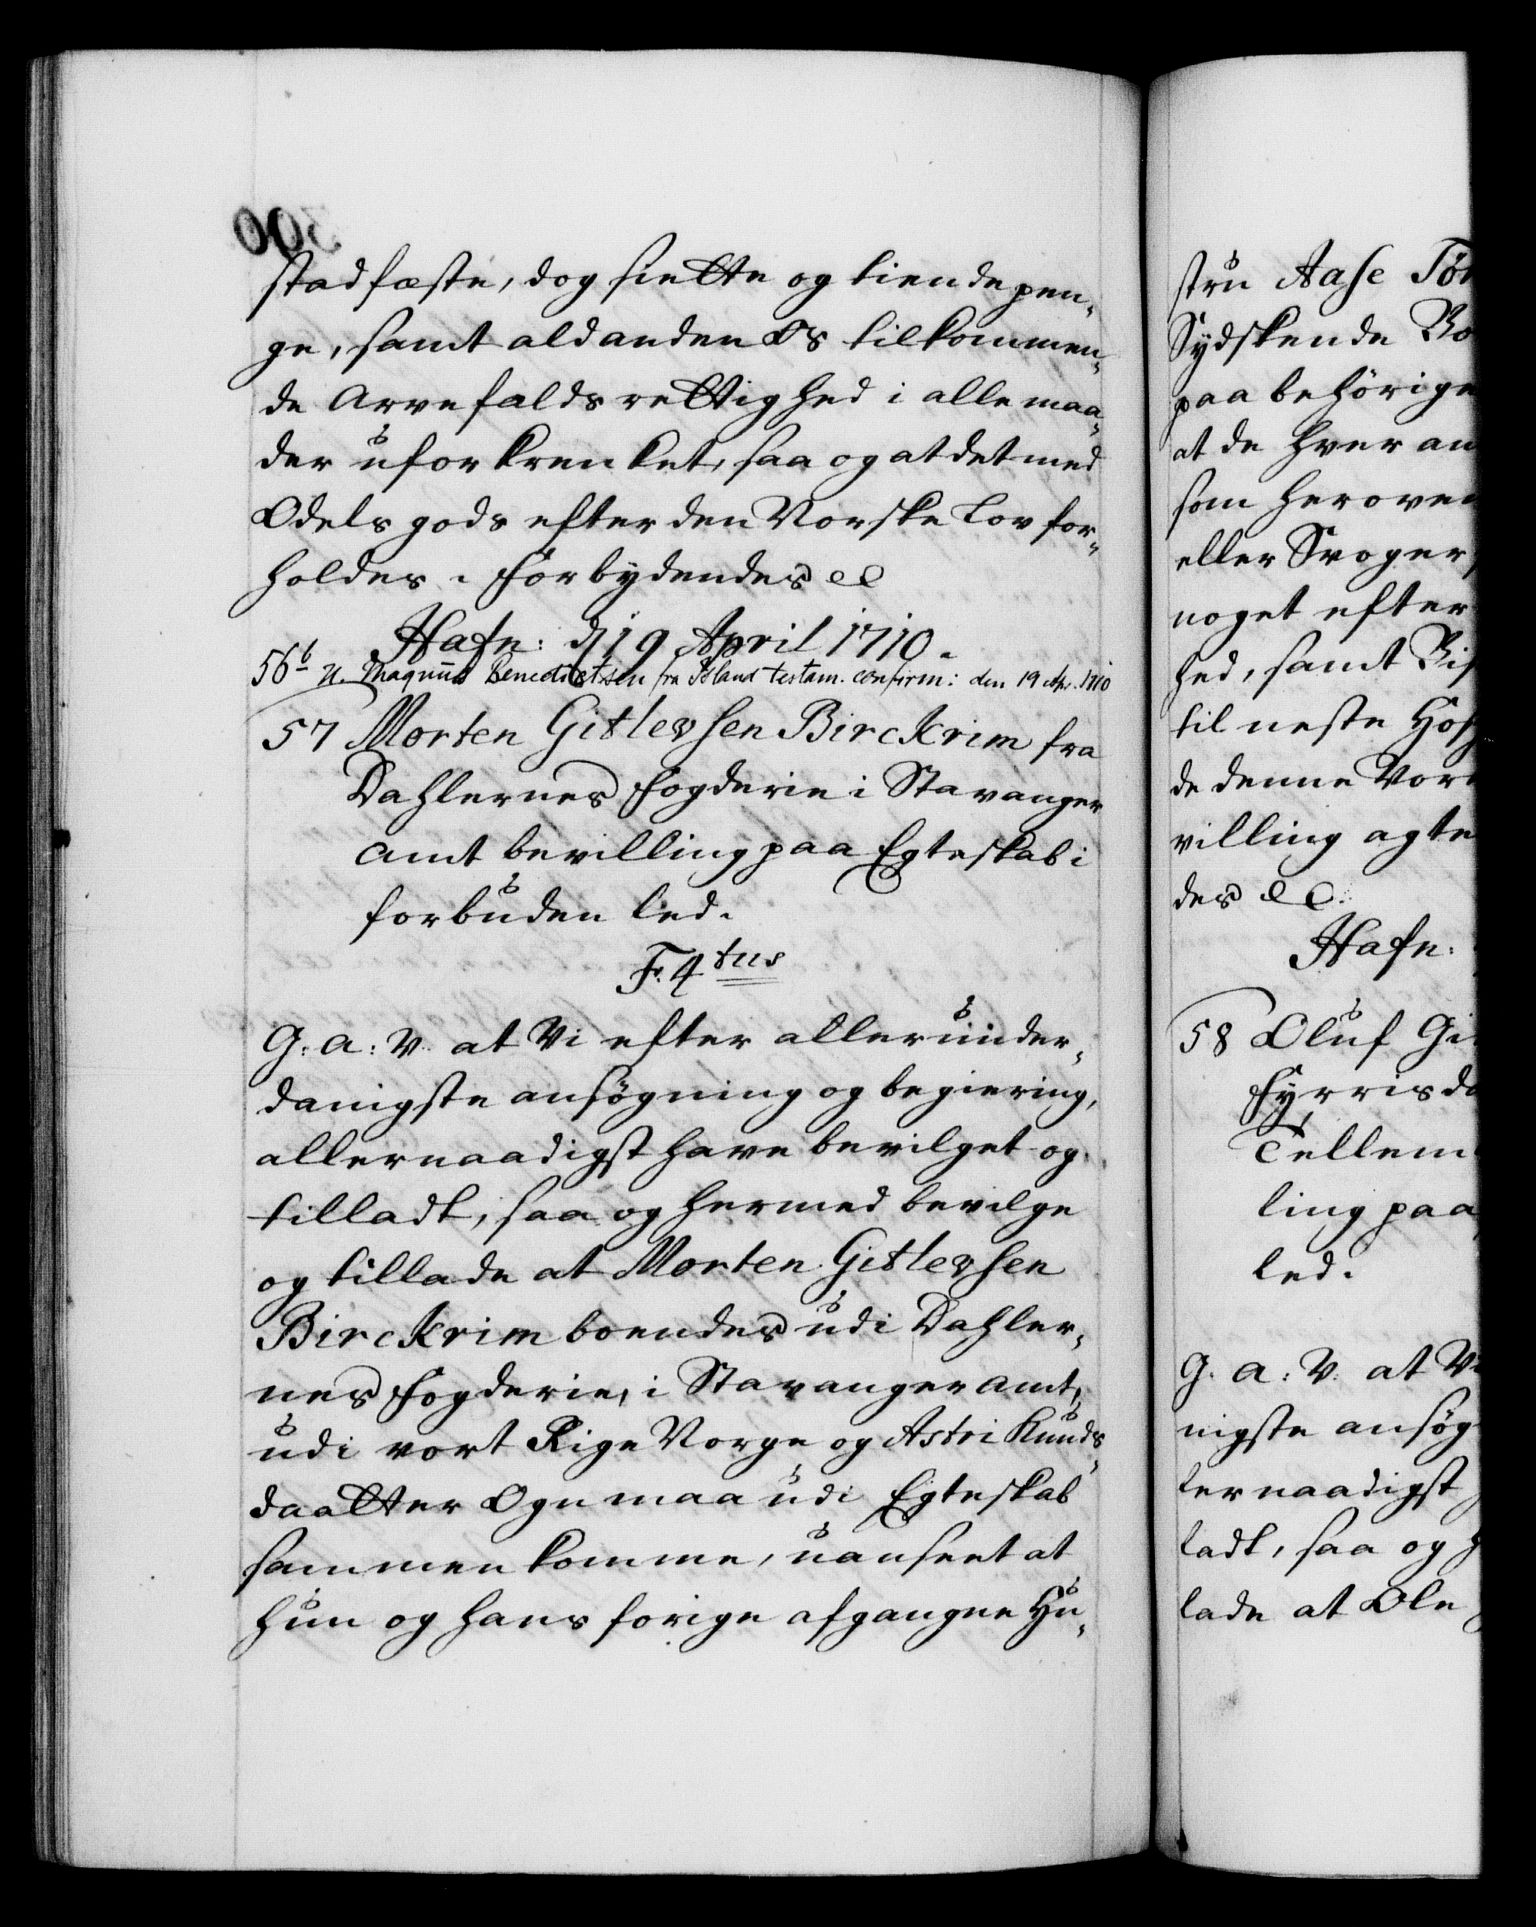 stadfæste, dog siette og tiendepen-
ge, samt ald anden Os tilkommen-
de Arvefalds rettighed i alle maa-
der uforkrenket, saa og at det med
Odels gods efter den Norske Lov for-
holdes. Forbydendes ec
Hafn: d 19 April 1710.
56b N. Magnus Benedictsen fra Island testam. confirm: den 19 Apr. 1710
57 Morten Gitlevsen Birckrim fra
Dahlernes Fogderie i Stavanger
Amt bevilling paa Egteskab i
forbuden led.
F. 4tus
G: A: V: at Vi efter allerunder-
danigste ansøgning og begiering,
allernaadigst have bevilget og
tilladt, saa og hermed bevilge
og tillade at Morten Gitlevsen
Birckrim boendes udi Dahler-
nes Fogderie, i Stavanger Amt,
udi vort Rige Norge og Astri Knuds-
daatter Ogn maa udi Egteskab
sammen komme, uanseet at
hun og hans forige afgangne Hu-
stru Aase Tør
Sydskende Bo
paa behørige
at de hver an
som heroven
eller Svoger
noget efter
hed, samt Bis
til neste Hos
de denne Vor
villing agte
des ec:
Hafn:
58 Oluf Gi
Fyrrisd
Tellem
ling paa
led.
G. A: V: at Vi
nigste ansøg
lernaadigst
ladt, saa og h
lade at Ole